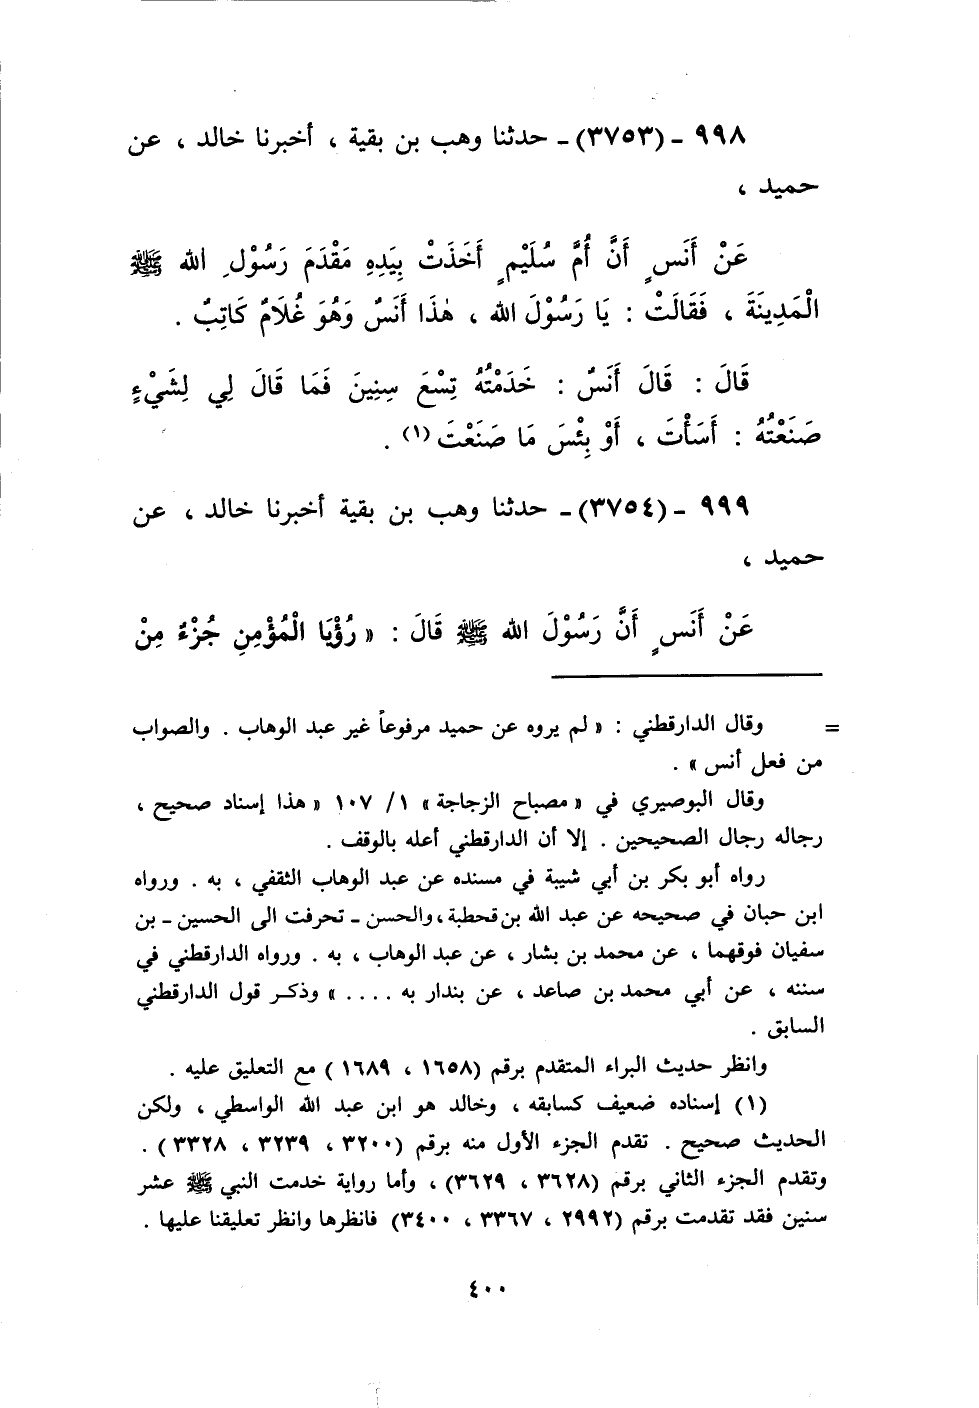 ٩٩٨ ـ (٣٧٥٣) ـ حدثنا وهب بن بقية ، أخبرنا خالد ، عن
حميد ،
عَنْ أَنَسٍ أَنَّ أُمَّ سُلَيْمٍ أَخَذَتْ بِيَدِهِ مَقْدَمَ رَسُوْلِ الله ﷺ
الْمَدِينَةَ ، فَقَالَتْ : يَا رَسُوْلَ الله ، هٰذَا أَنَسٌ وَهُوَ غُلَامٌ كَاتِبٌ .
قَالَ : قَالَ أَنَسٌ : خَدَمْتُهُ تِسْعَ سِنِينَ فَمَا قَالَ لِي لِشَيْءٍ
صَنَعْتُهُ : أَسَأْتَ ، أَوْ بِئْسَ مَا صَنَعْتَ (١) .
٩٩٩ ـ (٣٧٥٤) ـ حدثنا وهب بن بقية أخبرنا خالد ، عن
حميد ،
عَنْ أَنَسٍ أَنَّ رَسُوْلَ الله ﷺ قَالَ : « رُؤْيَا الْمُؤْمِنِ جُزْءٌ مِنْ
= وقال الدارقطني : « لم يروه عن حميد مرفوعاً غير عبد الوهاب . والصواب
من فعل أنس » .
وقال البوصيري في « مصباح الزجاجة » ١/ ١٠٧ « هذا إسناد صحيح ،
رجاله رجال الصحيحين . إلا أن الدارقطني أعله بالوقف .
رواه أبو بكر بن أبي شيبة في مسنده عن عبد الوهاب الثقفي ، به . ورواه
ابن حبان في صحيحه عن عبد الله بن قحطبة ، والحسن ـ تحرفت الى الحسين ـ بن
سفيان فوقهما ، عن محمد بن بشار ، عن عبد الوهاب ، به . ورواه الدارقطني في
سننه ، عن أبي محمد بن صاعد ، عن بندار به .... » وذكر قول الدارقطني
السابق .
وانظر حديث البراء المتقدم برقم (١٦٥٨ ، ١٦٨٩ ) مع التعليق عليه .
(١) إسناده ضعيف كسابقه ، وخالد هو ابن عبد الله الواسطي ، ولكن
الحديث صحيح . تقدم الجزء الأول منه برقم (٣٢٠٠ ، ٣٢٣٩ ، ٣٣٢٨ ) .
وتقدم الجزء الثاني برقم (٣٦٢٨ ، ٣٦٢٩) ، وأما رواية خدمت النبي ﷺ عشر
سنين فقد تقدمت برقم (٢٩٩٢ ، ٣٣٦٧ ، ٣٤٠٠) فانظرها وانظر تعليقنا عليها .
٤٠٠